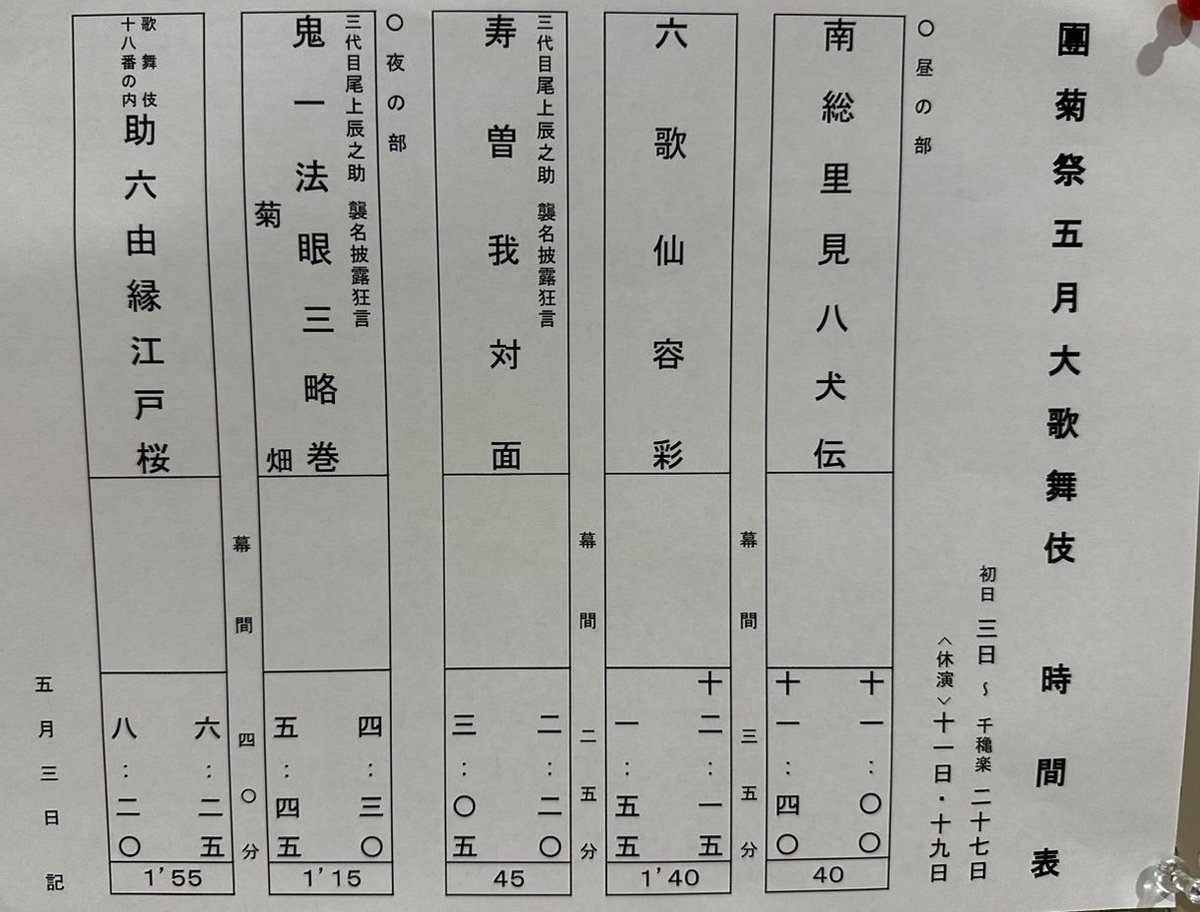 團菊祭五月大歌舞伎　時間表
初日 三日 ～ 千穐楽 二十七日
〈休演〉十一日・十九日
〇昼の部
南総里見八犬伝
十一：〇〇
十一：四〇
40
幕間 三五分
六歌仙容彩
十二：一五
一：五五
1'40
幕間 二五分
三代目尾上辰之助 襲名披露狂言
寿曽我対面
二：二〇
三：〇五
45
〇夜の部
三代目尾上辰之助 襲名披露狂言
鬼一法眼三略巻
菊畑
四：三〇
五：四五
1'15
幕間 四〇分
歌舞伎
十八番の内
助六由縁江戸桜
六：二五
八：二〇
1'55
五月三日 記